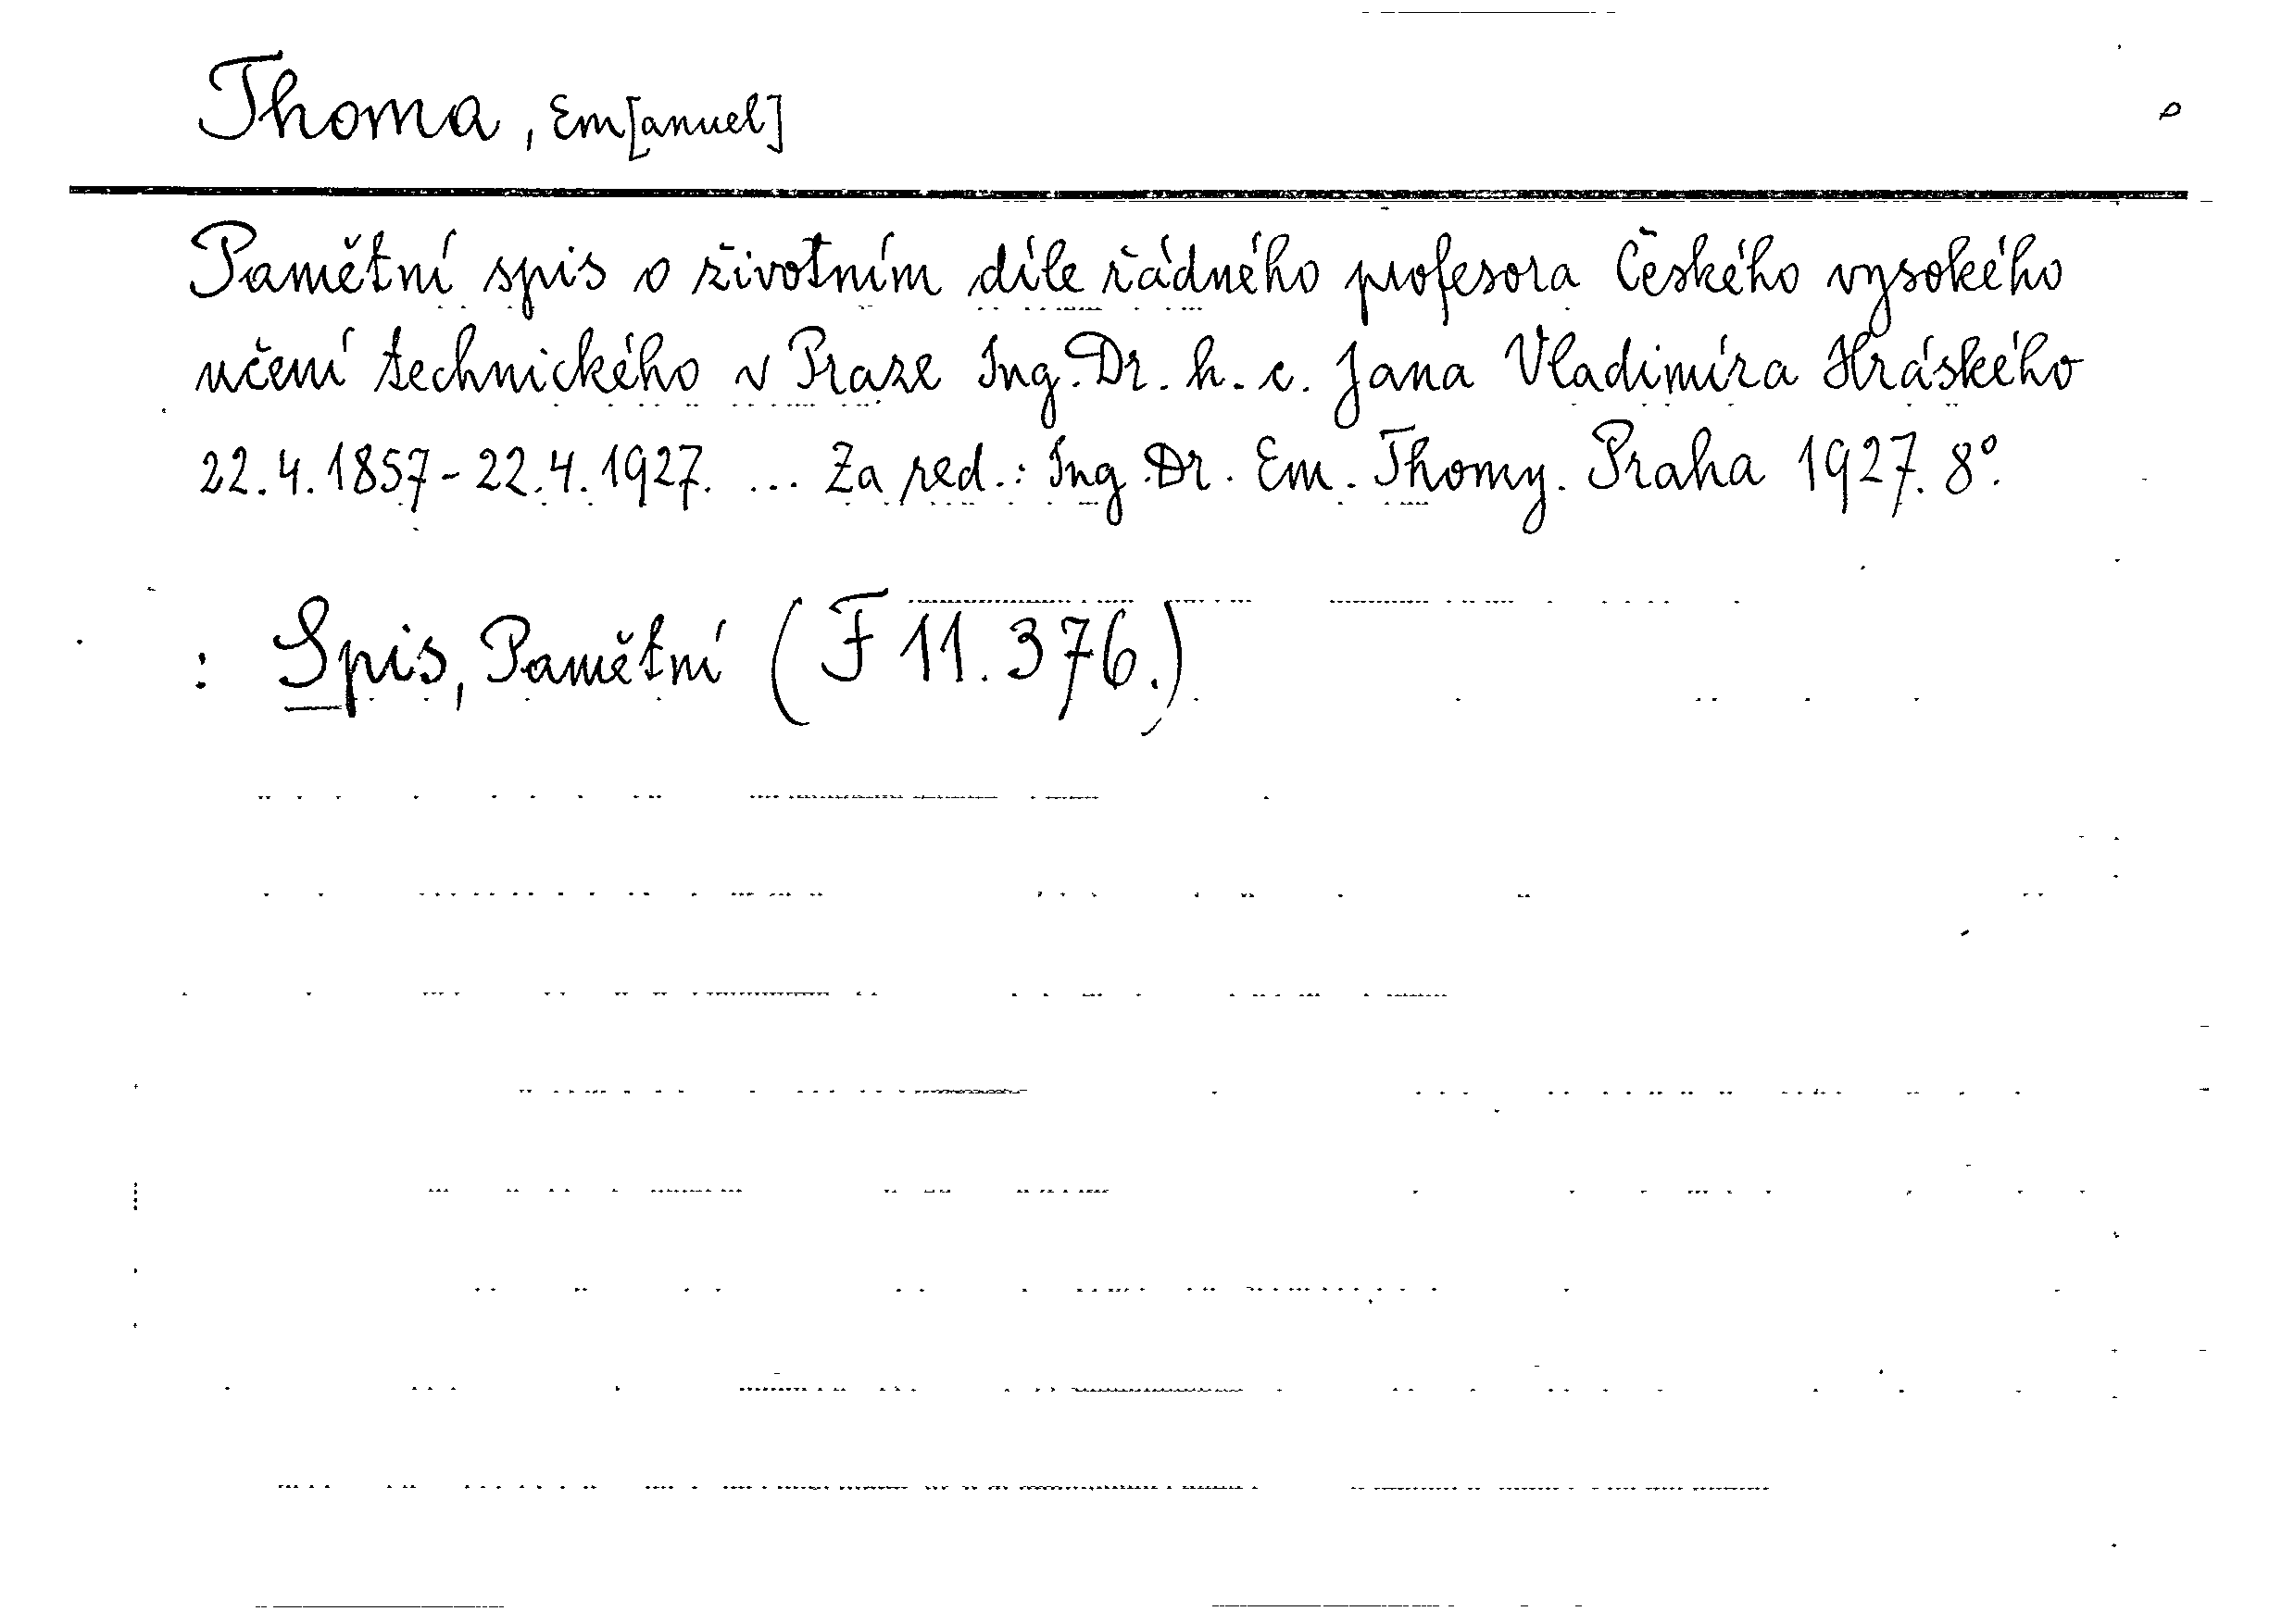 Thoma, Em[anuel]
Pamětní spis o životním díle řádného profesora Českého vysokého
učení technického v Praze Ing. Dr. h. c. Jana Vladimíra Hráského
22.4.1857-22.4.1927. ... Za red.: Ing. Dr. Em. Thomy. Praha 1927. 8°.
: Spis, Pamětní (F 11.376.)